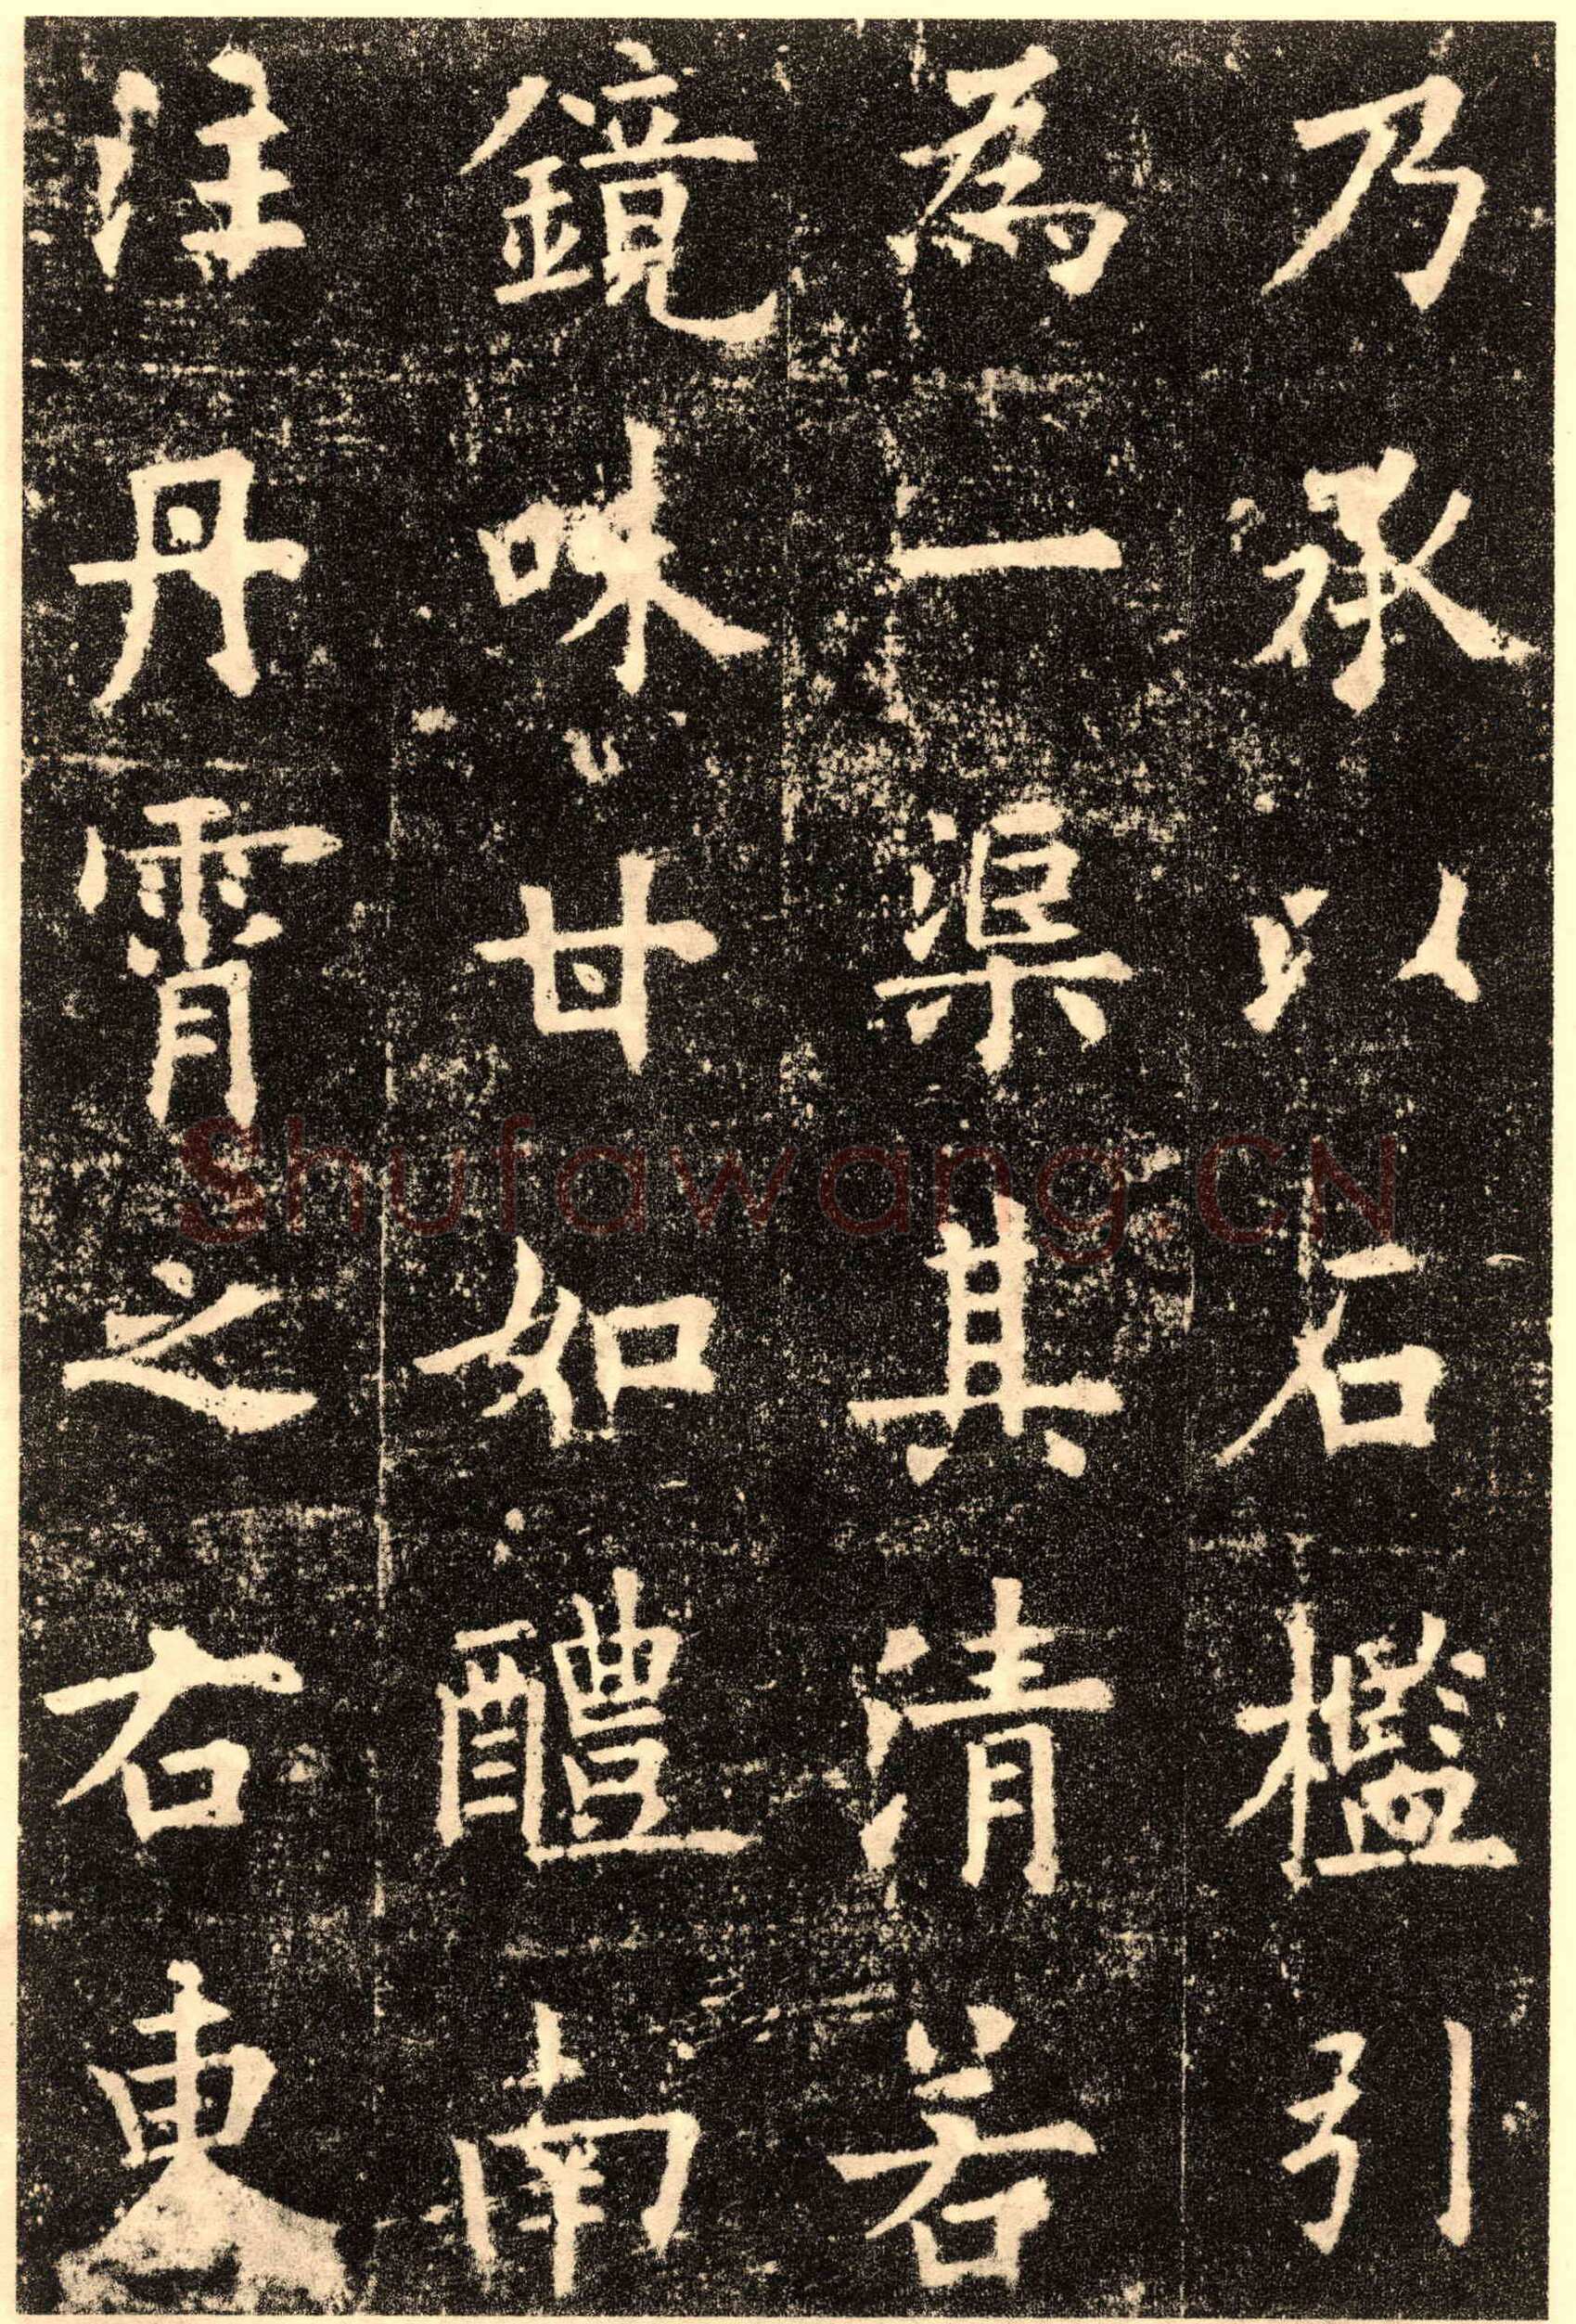 乃承以石檻引
為一渠其清若
鏡味甘如醴南
注丹霄之右東
Shufawang.CN